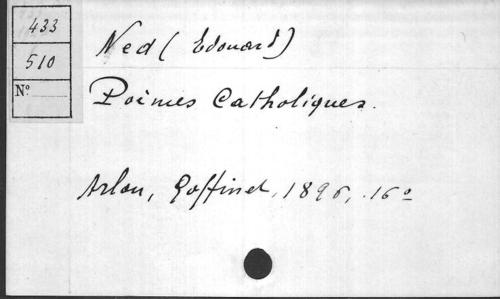 433
510
N°
Ned (Edouard)
Poèmes Catholiques.
Arlon, Goffinet, 1896, .16°